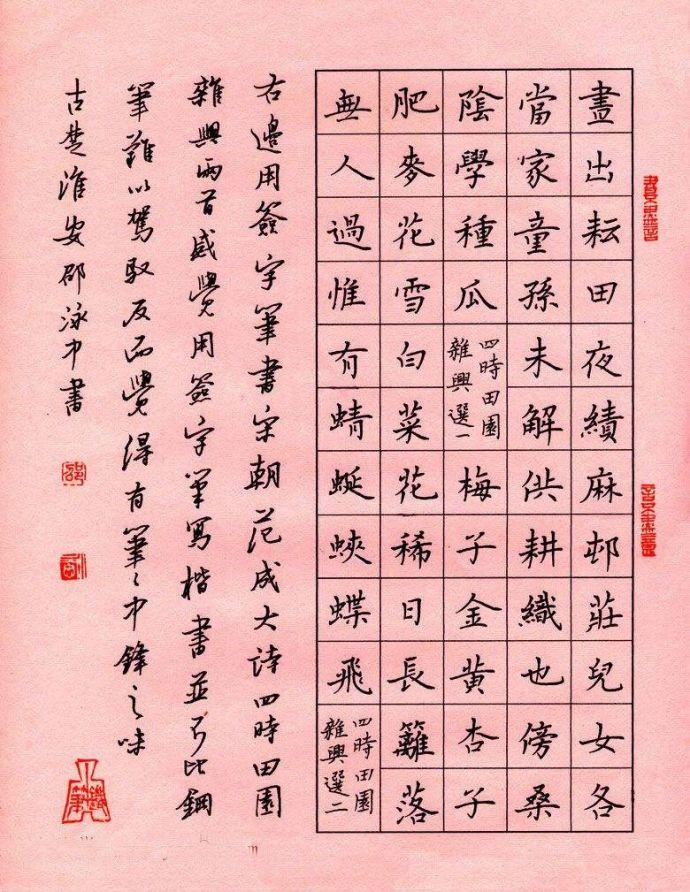 晝出耘田夜績麻邨莊兒女各
當家童孫未解供耕織也傍桑
陰學種瓜
四時田園
雜興選一
梅子金黄杏子
肥麥花雪白菜花稀日長籬落
無人過惟有蜻蜓蛺蝶飛
四時田園
雜興選二
右邊用簽字筆書宋朝范成大诗四時田園
雜興兩首感覺用簽字筆寫楷書並不比鋼
筆難以駕馭反而覺得有筆筆中鋒之味
古楚淮安邵泳中書
邵